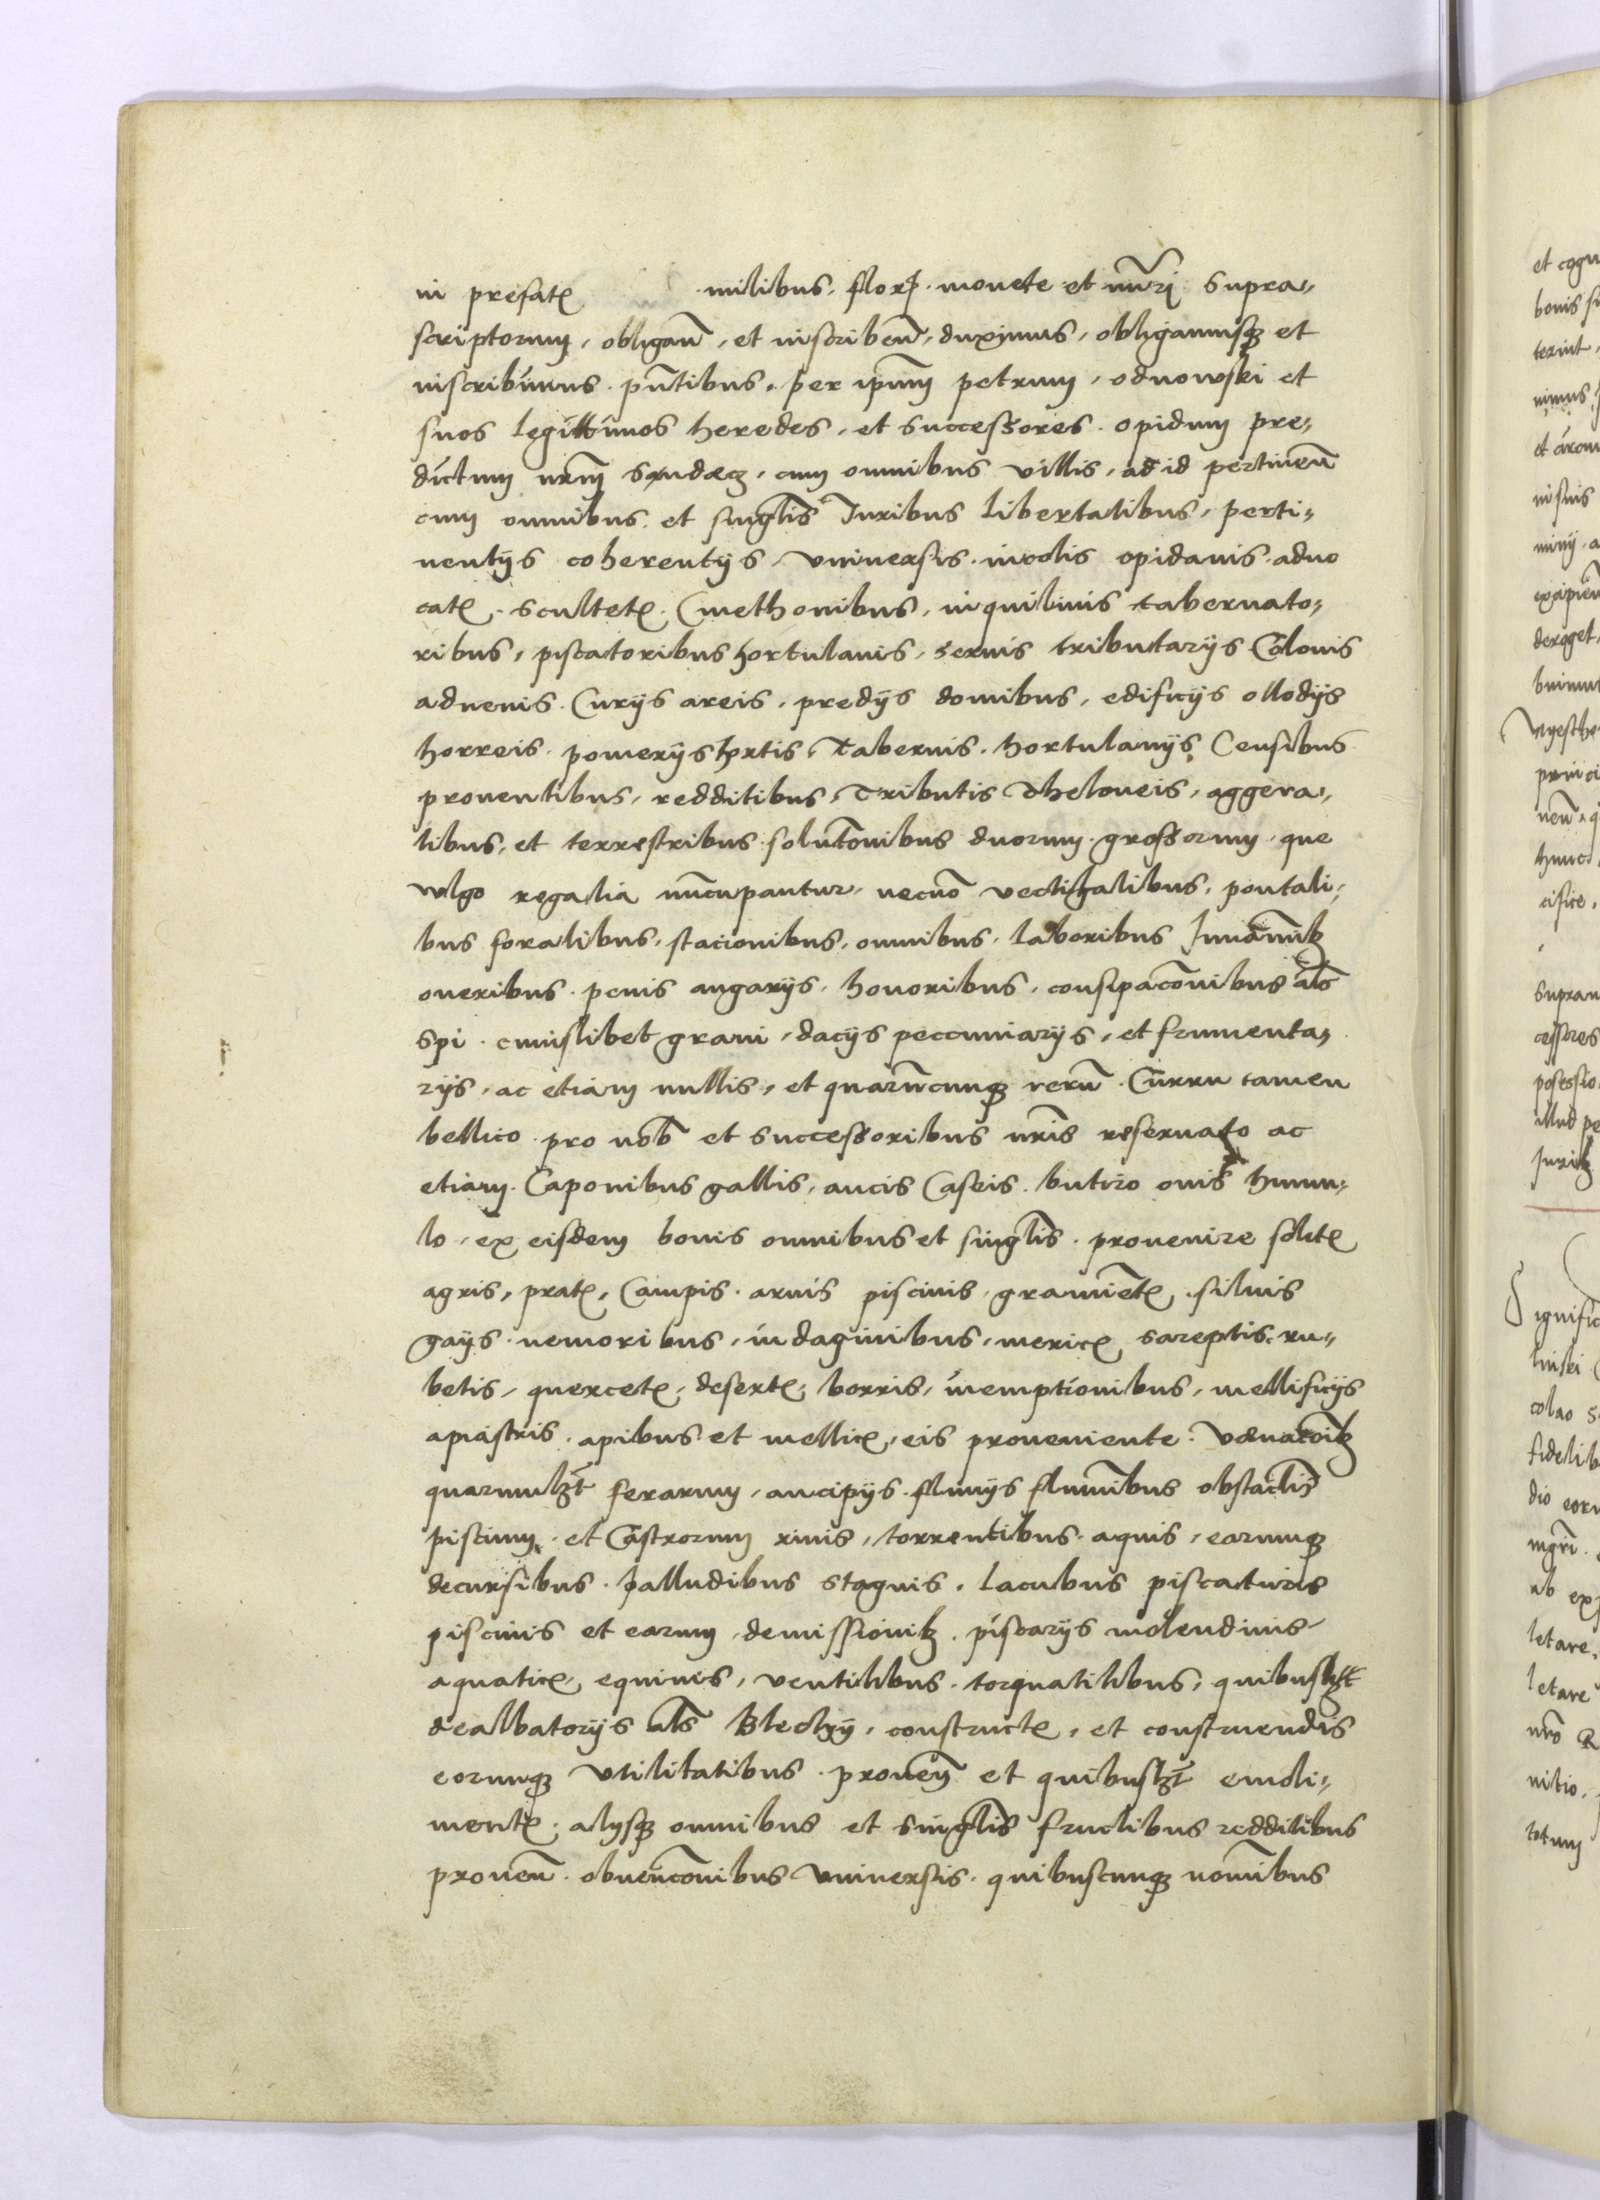 in prefatꝭ milibus. florꝭ. monete et nūri supra-
scriptorum, obligan̄, et inscriben̄, duximus, obligamusqꝫ et
inscribimus pn̄tibus. per ip̄um petrum, odnowski et
suos legittimos heredes, et successores. opidum pre-
dictum nrm̄ Sandecz, cum omnibus villis, ad id pertinen̄
cum omnibus et singlis Juribus libertatibus, perti-
nentijs coherentijs, vniuersis incolis opidanis aduo
catꝭ, scultetꝭ. Cmethonibus, inquilinis tabernato-
ribus, piscatoribus hortulanis, seruis tributarijs Colonis
aduenis. Curijs areis, predijs domibus, edificijs allodijs
horreis pomerijs hortis, Tabernis. hortulanijs Censibus
prouentibus, redditibus, Tributis Theloneis, aggera-
libus, et terrestribus solut̄onibus duorum grossorum que
vulgo regalia nūcupantur, necnō vectigalibus, pontali-
bus foralibus, stacionibus, omnibus, laboribus
oneribus. penis angarijs, honoribus, consipac̄onibus al̄s
Spi cuiuslibet grani, dacijs peccuniarijs, et frumenta-
rijs, ac etiam mellis, et quarūcunqꝫ rerū. Curru tamen
bellico pro nob̄ et successoribus nr̄is reseruato ac
etiam. Caponibus gallis, aucis Caseis butiro ouis humu-
lo, ex eisdem bonis omnibus et singlis. prouenire solitꝭ
agris, pratꝭ, Campis aruis piscinis, graminetꝭ siluis
gays nemoribus, indaginibus, mericꝭ sareptis, ru-
betis, quercetꝭ, desertꝭ, borris, inemptionibus, mellificijs
apiastris apibus et mellicꝭ, eis proueniente. venac̄oibꝫ
quarumlꝫt ferarum, aucipijs fluuijs flumi̅bus obstaclis
piscium et Castrorum riuis, torrentibus aquis, earumqꝫ
decursibus. palludibus stagnis. lacubus piscaturis
piscinis et earum, demissionibꝫ. piscarijs molendinis
aquaticꝭ, equinis, ventilibus torquatilibus, quibuslꝫt
dealbatorijs al̄s Blechy, constructꝭ, et construendis
eorumqꝫ vtilitatibus prouen̄ et quibuslꝫt emoli-
mentꝭ. alijsqꝫ omnibus et singlis fructibus redditibus
prouen̄. obuenc̄onibus vniuersis. quibuscunqꝫ nomi̅bus